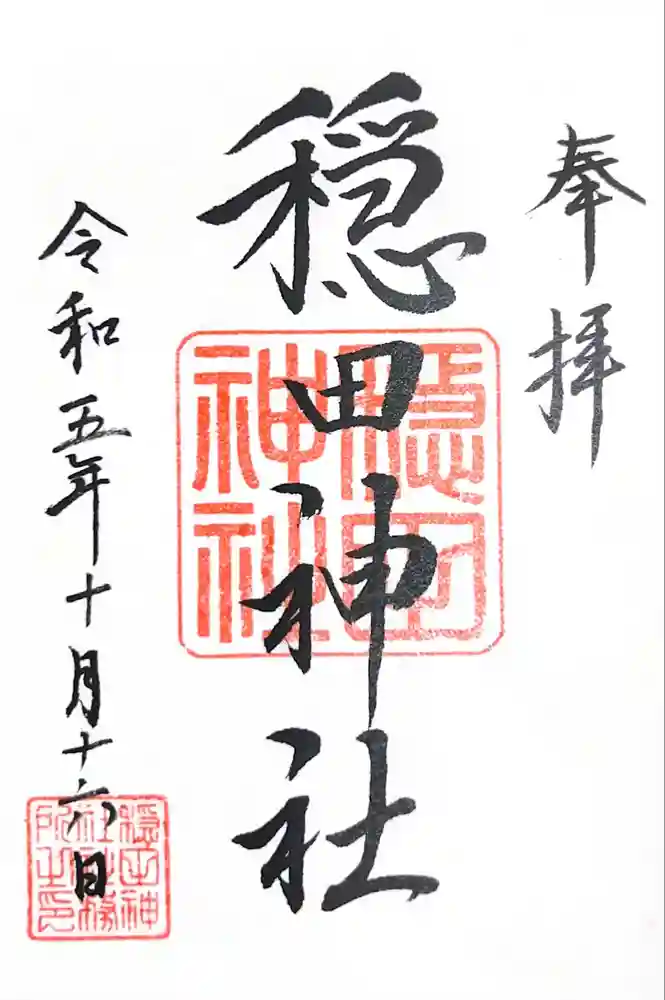 奉拝
穏田神社
令和五年十月十六日
穏田神社
穏田神社社務所之印